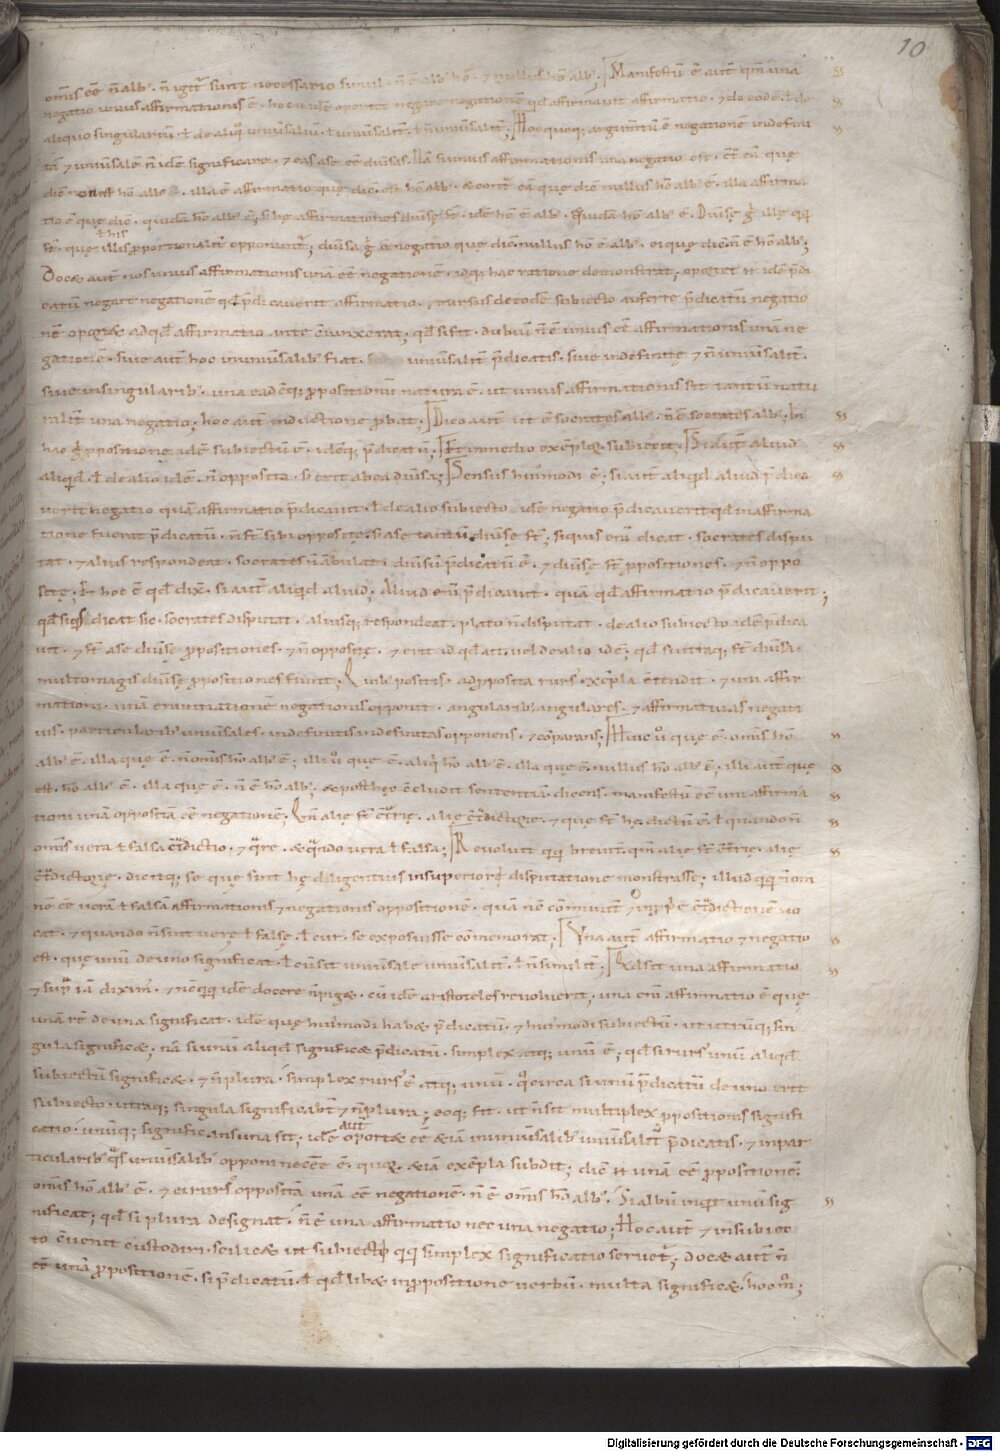 10
omnis eē n̄ alb. n̄ igit̄ sunt necessario simul. n̄ ē alb hō. & nullus hō alb. Manifestū ē aut̄ qm̄ una
negatio unius affirmationis ē. hoc idē oportet negare negationē qd̄ affirmauit affirmatio. & de eodē. ł de
aliquo singulariū. ł de aliq̊ uniūsaliū. ł uniūsalit̄. ł n̄ uniūsalit̄; Hoc quoq; argum̄tū ē negationē indefini
tā & uniūsalē n̄ idē significare. & eas a se eē diūsas. Nā si unius affirmationis una negatio est. cū eā quę
diē non est hō albus. illa ē affirmatio quę diē. est hō alb. & cont̄ eā quę diē nullus hō alb ē. illa affirma
tio ē quę diē. quidā hō alb ē; si hę affirmationes diūsę st̄. idē hō ē alb. & quidā hō alb ē. Diūsę ḡ illę qq̨
st̄. quę illis ł his proportionalit̄ opponunt̄; diūsa ḡ ē negatio quę diē nullus hō ē alb. ei quę diē n̄ ē hō alb;
Docet aut̄ nos unius affirmationis unā eē negationē. idq; hac ratione demonstrat; oportet .n. idē p̄di
catū negare negationē qd̄ p̄dicauerit affirmatio. & rursus de eodē subiecto auferre p̄dicatū negatio
nē oportet ad qd̄ affirmatio ante c̄iunxerat; qd̄ si fit. dubiū n̄ ē unius eē affirmationis unā ne
gationē. siue aut̄ hoc in uniūsalib fiat. uniūsalit̄ p̄dicatis. siue indefinite & n̄ uniūsalit̄.
siue in singularib. una eadēq; p̄positionū natura ē. ut unius affirmationis sit tantū natu
ralit̄ una negatio; hoc aut̄ inductione p̄bat; Dico aut̄ ut ē socrates alb. n̄ ē socrates alb; In
hac ḡ p̄positione idē subiectū ē. idēq; p̄dicatū; Et in medio exēplū subiecit; Si aut̄ aliud
aliqd̄. ł de alio idē. n̄ opposita. s; erit ab ea diūsa; Sensus hui modi ē; si aut̄ aliqd̄ aliud p̄dica
uerit negatio quā affirmatio p̄dicauit. ł de alio subiecto idē negatio p̄dicauerit qd̄ in affirma
tione fuerat p̄dicatū. n̄ st̄ sibi oppositę. s; a se tantū diūsę st̄; siquis enī dicat. socrates dispu
tat. & alius respondeat. socrates n̄ ābulat; diūsū p̄dicatū ē. & diūsę st̄ p̄positiones. & n̄ oppo
sitę; Et hoc ē qd̄ dix̄. si aut̄ aliqd̄ aliud; Aliud enī p̄dicauit. quā qd̄ affirmatio p̄dicauerit;
qd̄ siqs dicat sic. socrates disputat. aliusq; respondeat. plato n̄ disputat. de alio subiecto idē p̄dica
uit. & st̄ a se diūsę p̄positiones. & n̄ oppositę. & erit id qd̄ ait. uel de alio idē; qd̄ si utraq; st̄ diūsa.
multo magis diūsę p̄positiones fiunt; Quib positis. ad p̄posita rurs' exēpla c̄tendit. & una affir
mationi. unā enuntiationē negationis opponit. singularib singulares. & affirmatiuas negati
uis. particularib uniūsales. indefinitis indefinitas opponens. & cōparans; Huic ů quę ē. omnis hō
alb ē. illa quę ē. n̄ omnis hō alb ē; illi ů quę ē. aliq̨ hō alb ē. illa quę ē. nullus hō alb ē; illi aut̄ quę
est. hō alb ē. illa quę ē. n̄ ē hō alb; & post hęc c̄cludit sententiā dicens. manifestū eē uni affirma
tioni unā oppositā eē negationē; Qm̄ alię st̄ c̄trię. alię c̄tdictorię. & quę st̄ hę dictū ē. ł quando n̄
omnis uera ł falsa c̄tdictio. & q̄re. & q̄ndo uera ł falsa; Reuoluit qq̨ breuit̄. qm̄ alię st̄ c̄trię. alię
c̄tdictorię. dicitq; se quę sint hę diligentius in superiore disputatione monstrasse; illud qq̨ n̄ om
nē eē uerā ł falsā affirmationis & negationis oppositionē. quā nē cōmunit̄ & inp̄p̄e c̄tdictionē uo
cat. & quando n̄ sint uerę ł falsę. ł cur. se exposuisse cōmemorat; Una aut̄ affirmatio & negatio
est. quę unū de uno significat. ł cū sit uniūsale uniūsalit̄. ł n̄ similit̄; Qd̄ sit una affirmatio
& sup̄ iā dixim'. & nē qq̨ idē docere n̄ pigeat. cū idē aristoteles reuoluerit. una enī affirmatio ē quę
unā rē de una significat. idē quę hui modi habet p̄dicatū. & hui modi subiectū. ut utrūq; sin
gula significet; nā si unū aliqd̄ significet p̄dicatū. simplex atq; unū ē; qd̄ si rurs' unū aliqd̄
subiectū significet. & n̄ plura. simplex rurs' ē atq; unū. q̊ circa si unū p̄dicatū de uno erit
subiecto. utraq; singula significabt̄ & n̄ plura; eoq; fit. ut n̄ sit multiplex p̄positionis signifi
catio. unūq; significans una sit; idē aut̄ oportet eē etiā in uniūsalib uniūsalit̄ p̄dicatis. & in par
ticularib q̊s uniūsalib opponi necēe ē. quoq. etiā exēpla subdit; diē .n. unā eē p̄positionē.
omnis hō alb ē. & ei rurs' oppositā unā eē negationē. n̄ ē omnis hō alb. Si albū inqt unū sig
nificat; qd̄ si plura designat. n̄ ē una affirmatio nec una negatio; Hoc aut̄ & in subiec
to c̄uenit custodiri. scilicet ut subiecti qq̨ simplex significatio seruet̄; docet aut̄ n̄
eē unā p̄positionē. si p̄dicatū ł qd̄libet in p̄positione uerbū. multa significet. hoc m̊;
Digitalisierung gefördert durch die Deutsche Forschungsgemeinschaft - DFG